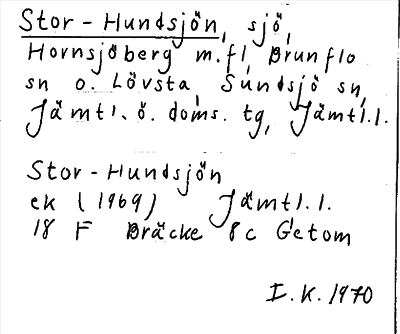 Stor-Hundsjön, sjö,
Hornsjöberg m.fl, Brunflo
sn o. Lövsta, Sundsjö sn,
Jämtl. ö. doms. tg, Jämtl.l.
Stor-Hundsjön
ek (1969) Jämtl.l.
18 F Bräcke 8c Getom
I.K. 1970